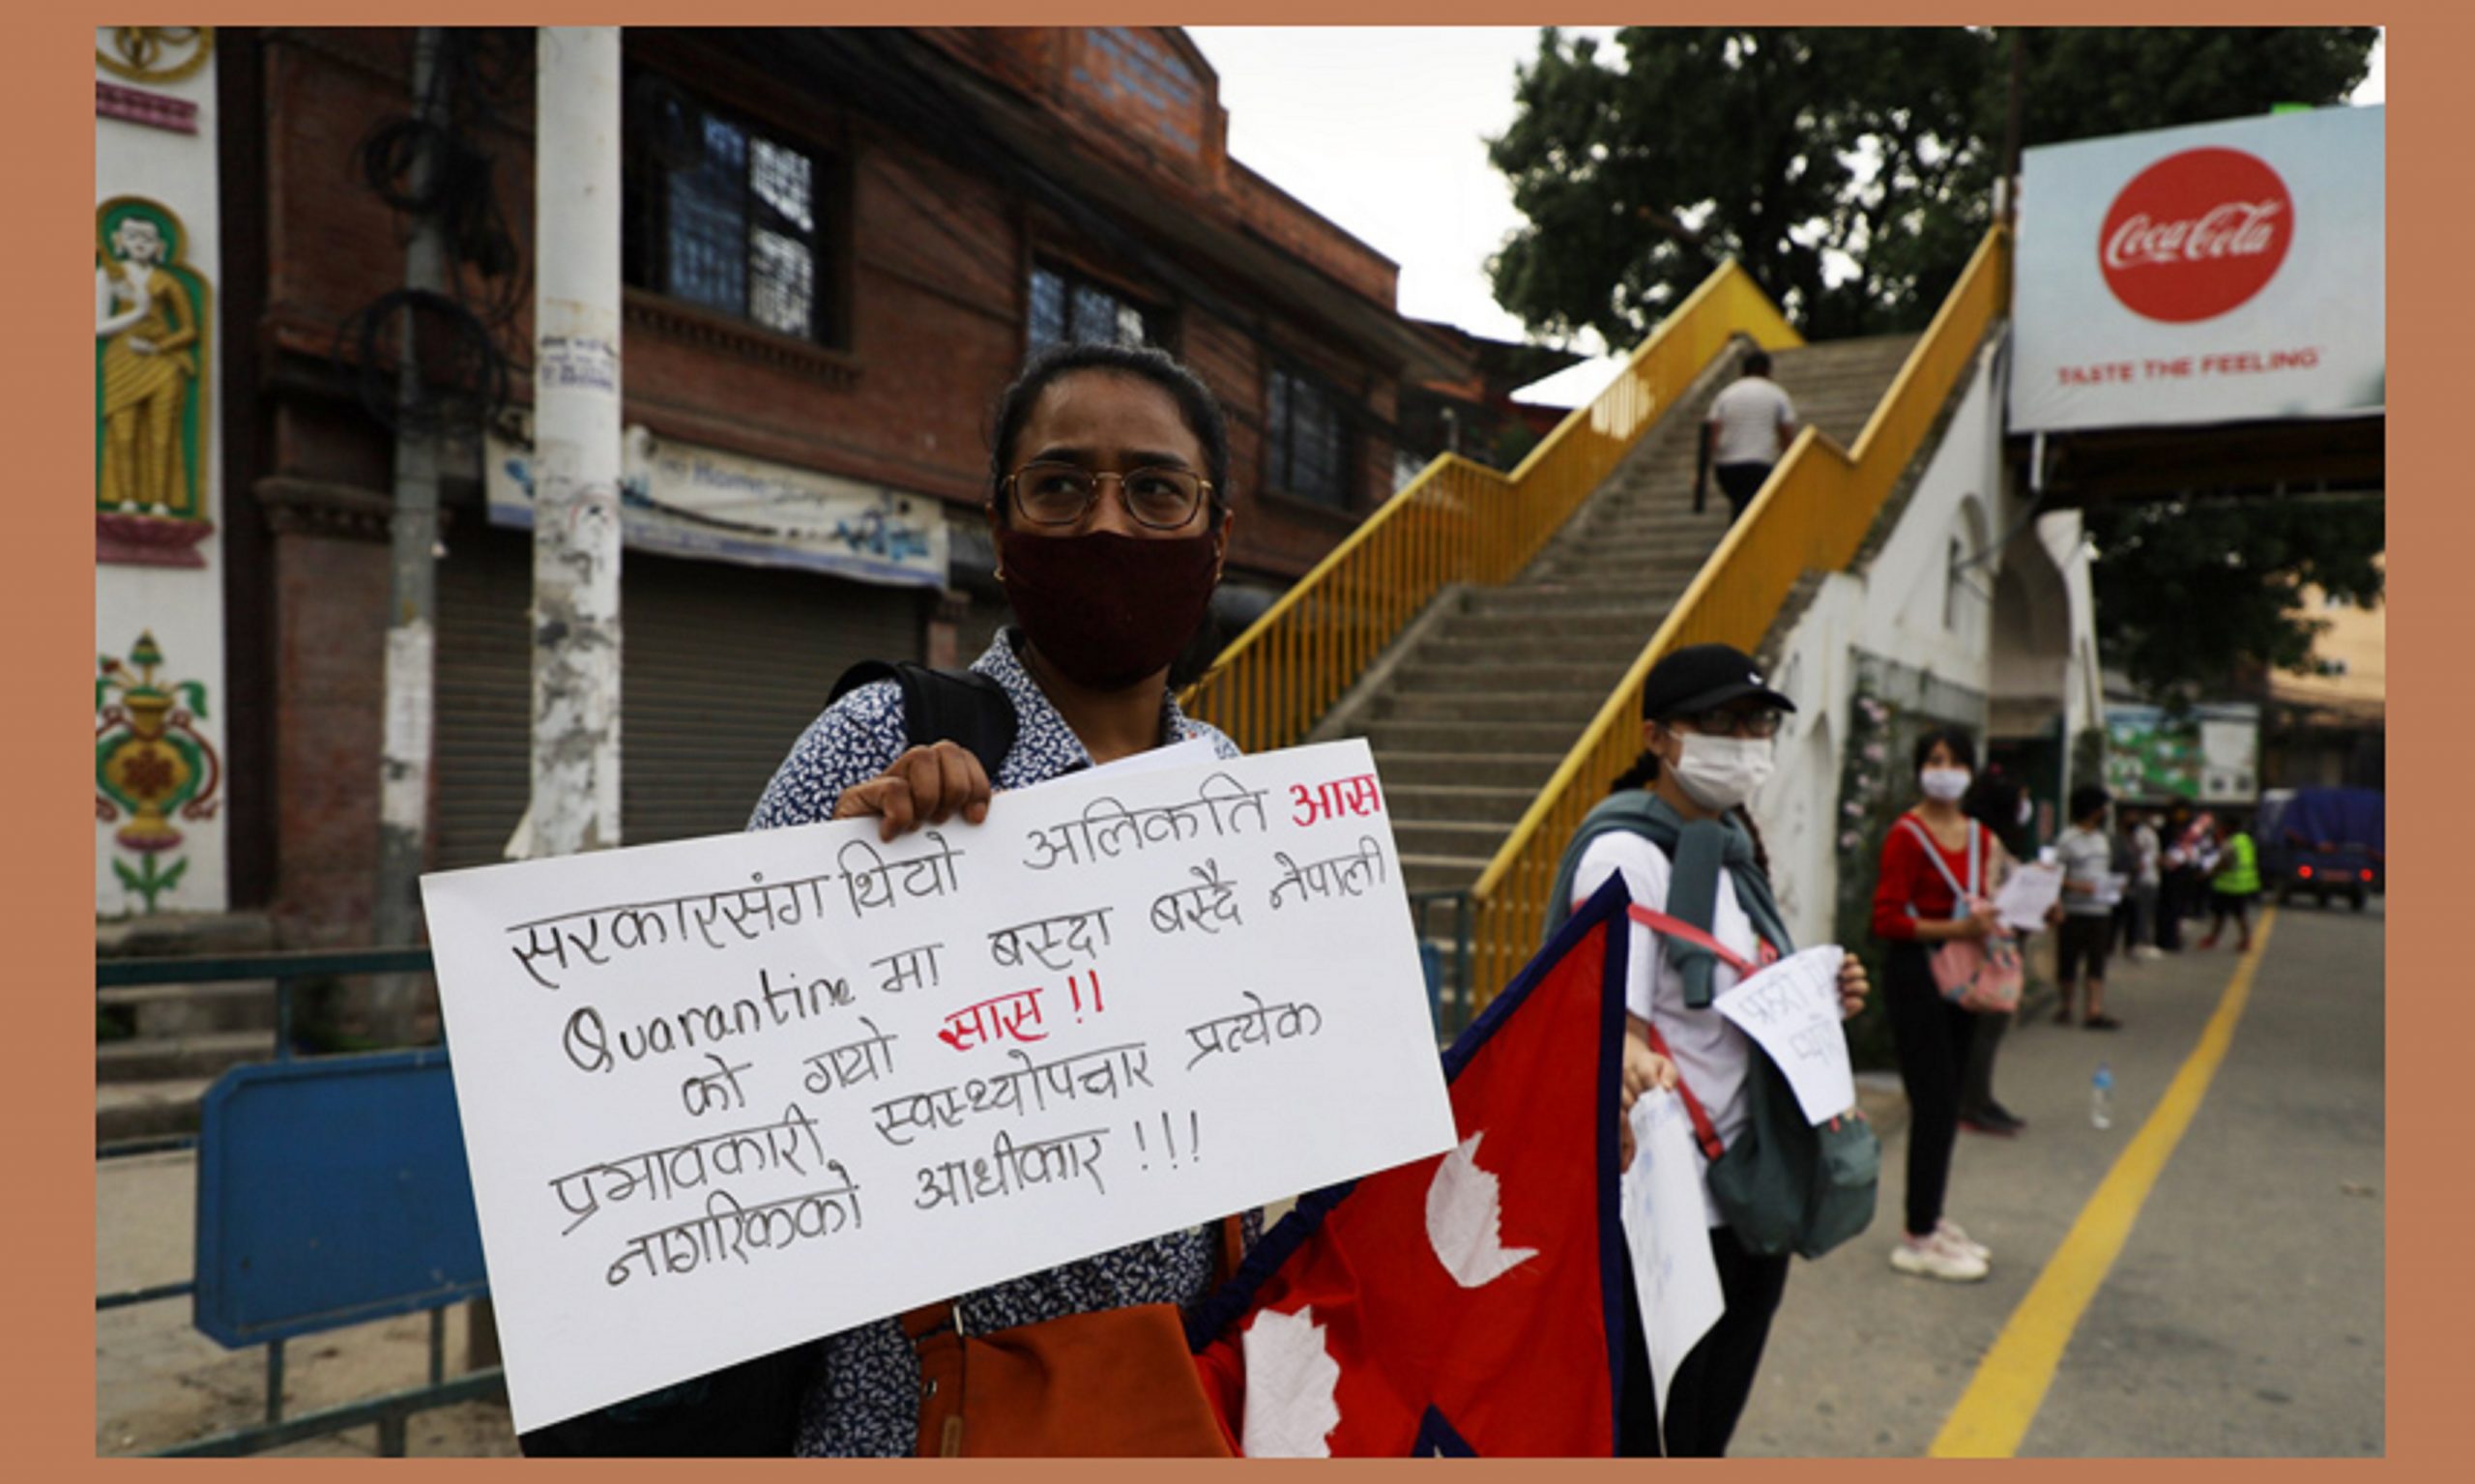 सरकारसंग थियो अलिकति आस
Quarantine मा बस्दा बस्दै नेपाली
को गयो सास !!
प्रभावकारी स्वस्थ्योपचार प्रत्येक
नागरिकको आधीकार !!!
Coca-Cola
TASTE THE FEELING